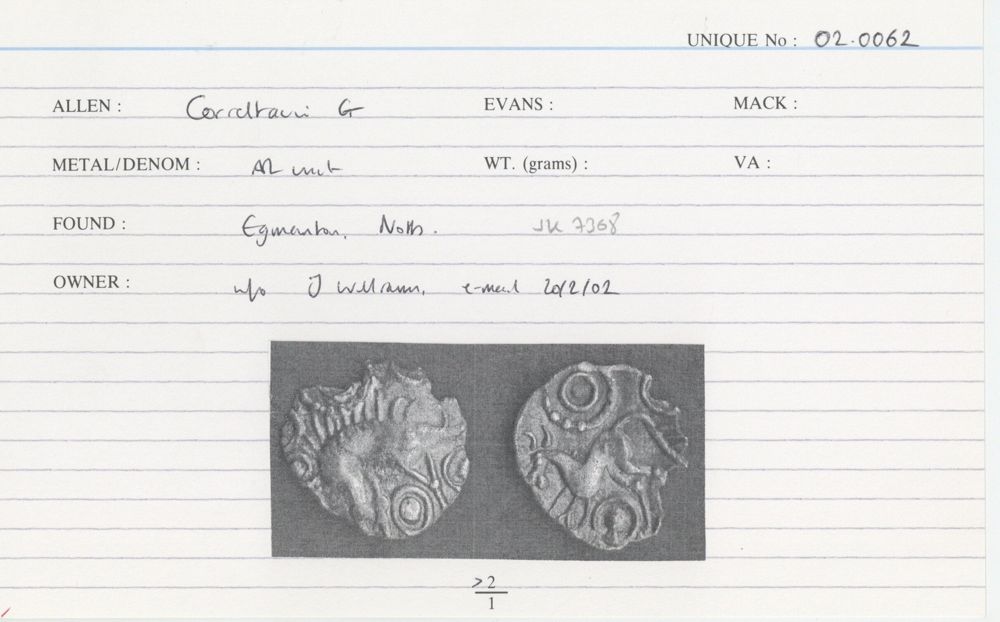 UNIQUE No : 02.0062
ALLEN : Correltauvi G EVANS : MACK :
METAL/DENOM : AR unit WT. (grams) : VA :
FOUND : Egmanton, Notts. SK 7368
OWNER : w/o J Williams, e-mail 20/2/02
>2
1